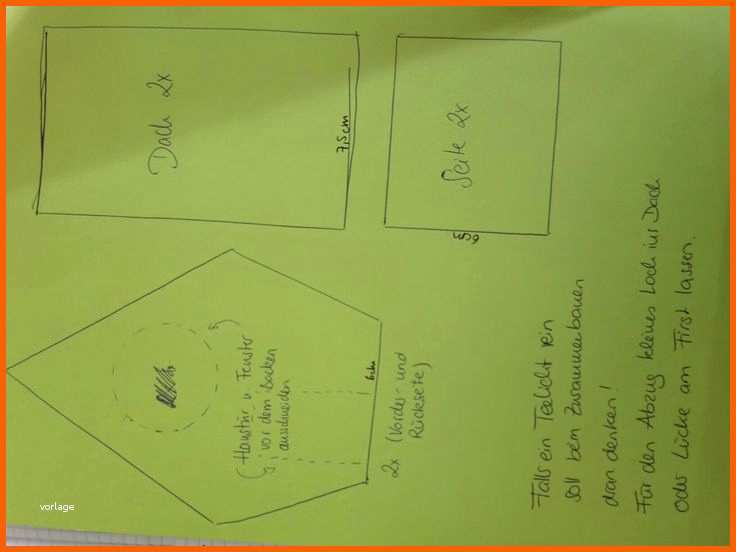 Dach 2x
7,5cm
Seite 2x
Haustür u. Fenster
vor dem backen
ausschneiden
6cm
2x (Vorder- und
Rückseite)
Falls ein Teelicht rein
soll beim Zusammenbauen
dran denken!
Für den Abzug kleines Loch ins Dach
oder Lücke am First lassen.
vorlage